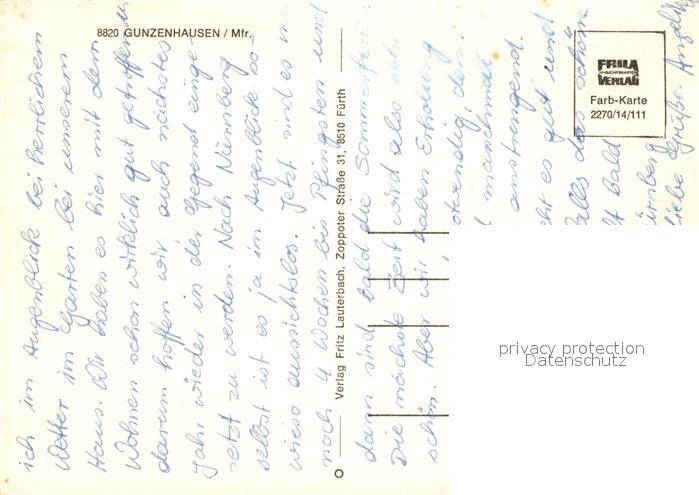 8820 GUNZENHAUSEN / Mfr.
FRILA
ANSICHTSKARTEN
VERLAG
Farb-Karte
2270/14/111
Verlag Fritz Lauterbach, Zoppoter Straße 31, 8510 Fürth
ich im Augenblick bei herrlichem
Wetter im Garten bei unserem
Haus. Wir haben es hier mit dem
Wohnen schon wirklich gut getroffen u.
darum hoffen wir auch nächstes
Jahr wieder in der Gegend einge-
setzt zu werden. Nach Nürnberg
selbst ist es ja im Augenblick so-
wieso aussichtslos. Jetzt sind es nur
noch 4 Wochen bis Pfingsten und
dann sind bald die Sommerferien
Die nächste Zeit wird also sehr
schön. Aber wir haben Erholung
notwendig, den
manchmal
anstrengend.
geht es gut und
alles das schöne
bald
Nürnberg
liebe Grüße. Angelika
privacy protection
Datenschutz